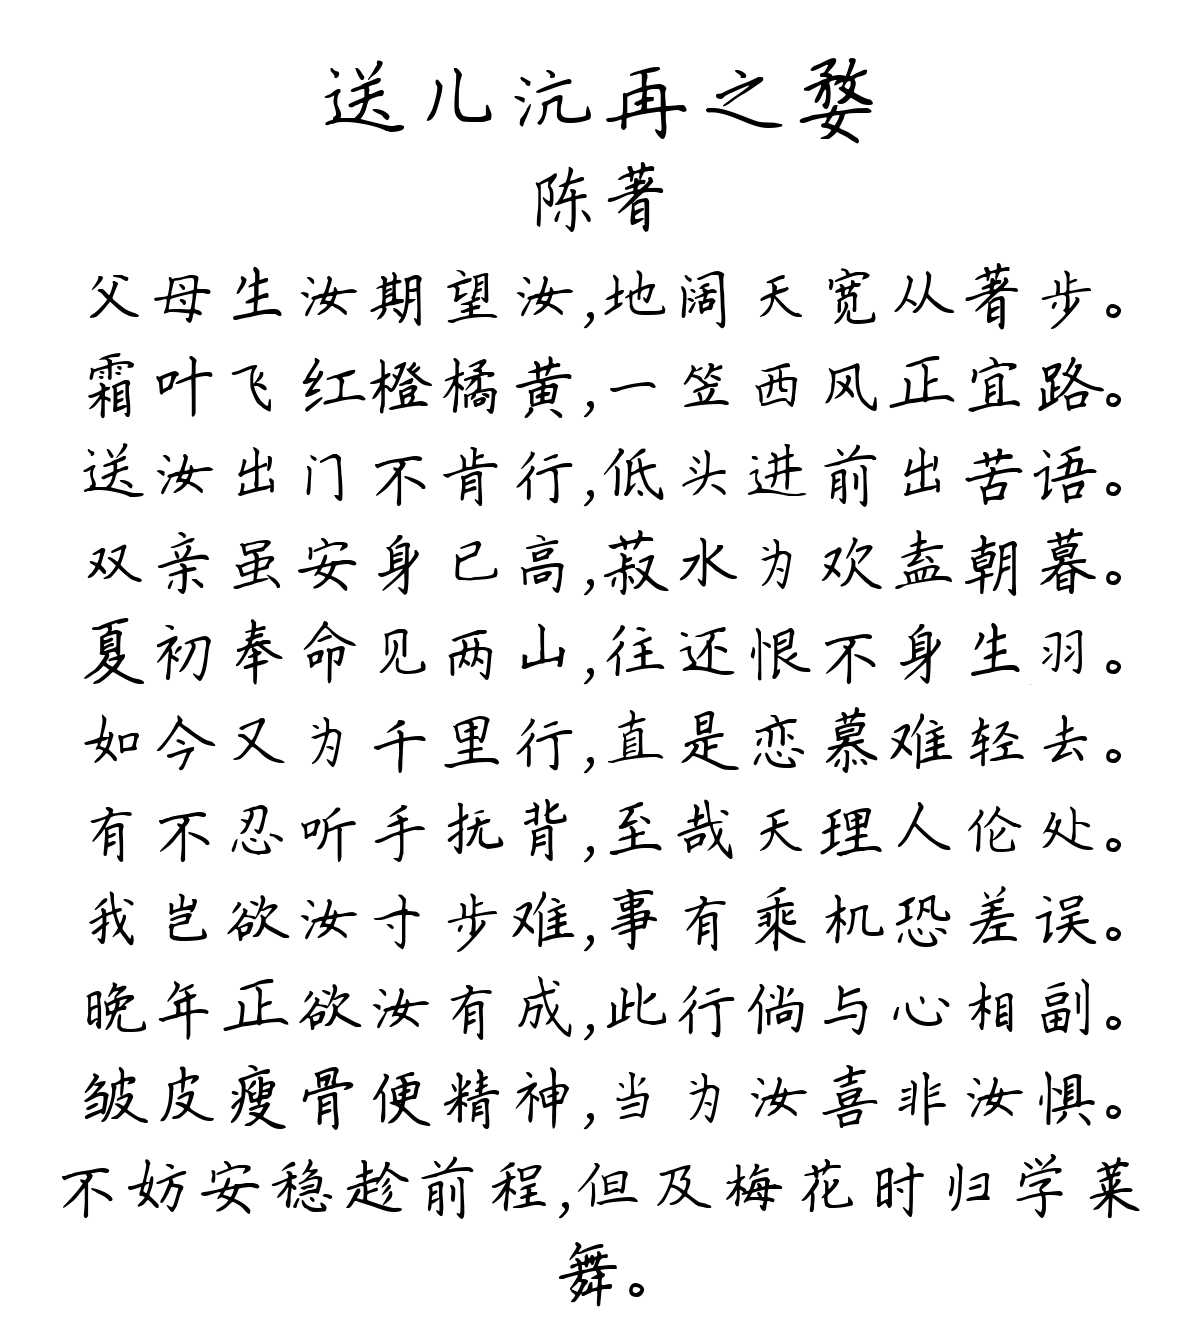 送儿沆再之婺
陈著
父母生汝期望汝,地阔天宽从著步。
霜叶飞红橙橘黄,一笠西风正宜路。
送汝出门不肯行,低头进前出苦语。
双亲虽安身已高,菽水为欢盍朝暮。
夏初奉命见两山,往还恨不身生羽。
如今又为千里行,直是恋慕难轻去。
有不忍听手抚背,至哉天理人伦处。
我岂欲汝寸步难,事有乘机恐差误。
晚年正欲汝有成,此行倘与心相副。
皱皮瘦骨便精神,当为汝喜非汝惧。
不妨安稳趁前程,但及梅花时归学莱
舞。